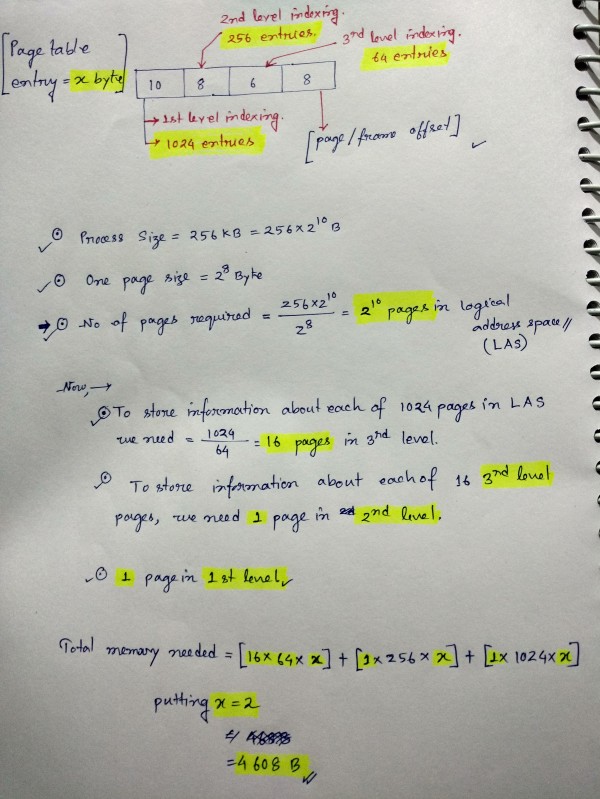 2nd level indexing.
256 entries.
3rd level indexing.
64 entries
[Page table
entry = x byte]
10 8 6 8
→ 1st level indexing.
→ 1024 entries
[page/frame offset] ✓
✓ ⊙ Process Size = 256 KB = 256 × 2¹⁰ B
✓ ⊙ One page size = 2⁸ Byte
→ ⊙ No of pages required = 256×2¹⁰ / 2⁸ = 2¹⁰ pages in logical
address space //
(LAS)
Now, →
⊙ To store information about each of 1024 pages in LAS
we need = 1024 / 64 = 16 pages in 3rd level.
⊙ To store information about each of 16 3rd level
pages, we need 1 page in 2nd level.
✓ ⊙ 1 page in 1st level ✓
Total memary needed = [16 × 64 × x] + [1 × 256 × x] + [1 × 1024 × x]
putting x = 2
= 4608 B ✓